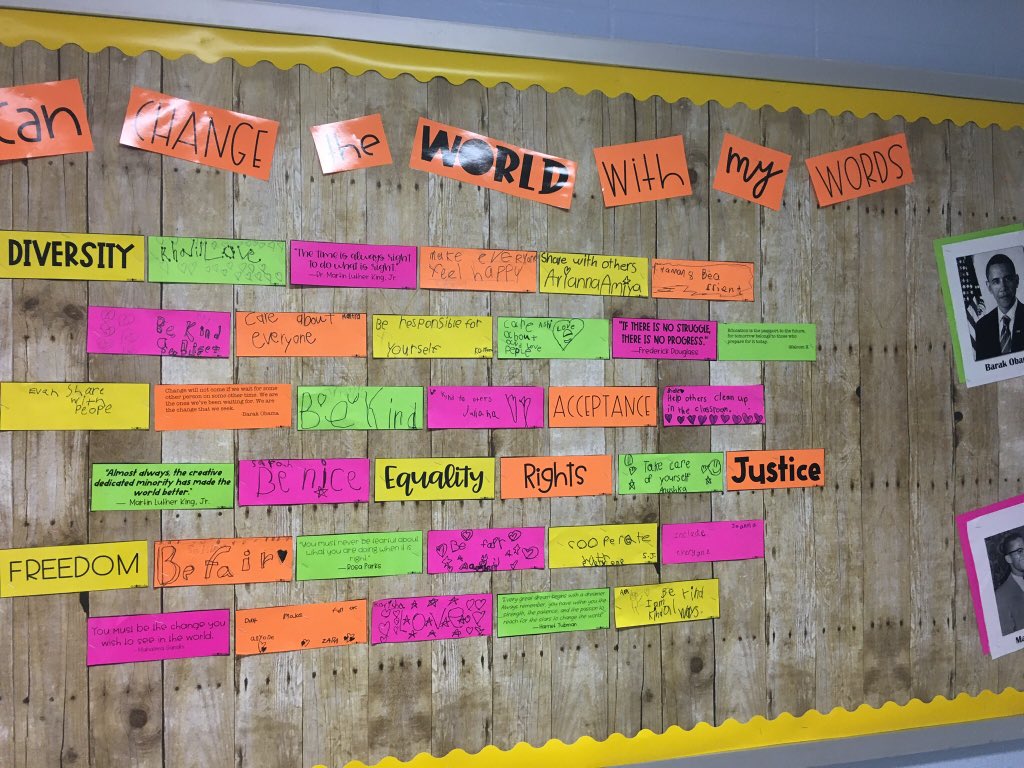 can CHANGE the WORLD with my WORDS
DIVERSITY
Khalil Love
"The time is always right
to do what is right."
—Dr. Martin Luther King, Jr.
make everyone
feel happy
Share with others
Arianna Amiya
Be Kind
care about
everyone
Be responsible for
yourself
care
about
people
Love
"IF THERE IS NO STRUGGLE,
THERE IS NO PROGRESS."
—Frederick Douglass
Education is the passport to the future,
for tomorrow belongs to those who
prepare for it today.
Malcolm X
Evan Share
with
People
Change will not come if we wait for some
other person on some other time. We are
the ones we've been waiting for. We are
the change that we seek.
-Barak Obama
Be Kind
Kind to others
ACCEPTANCE
Help others clean up
in the classroom.
"Almost always, the creative
dedicated minority has made the
world better."
— Martin Luther King, Jr.
Sarah
Be nice
Equality
Rights
Take care
of yourself
Justice
FREEDOM
Be fair
"You must never be fearful about
what you are doing when it is
right."
—Rosa Parks
Be fair
cooperate
S.J.
include
everyone
You Must be the change you
wish to see in the world.
- Mahatma Gandhi
Dont
"Every great dream begins with a dreamer.
Always remember, you have within you the
strength, the patience, and the passion to
reach for the stars to change the world."
—Harriet Tubman
Be kind
Barak Obam